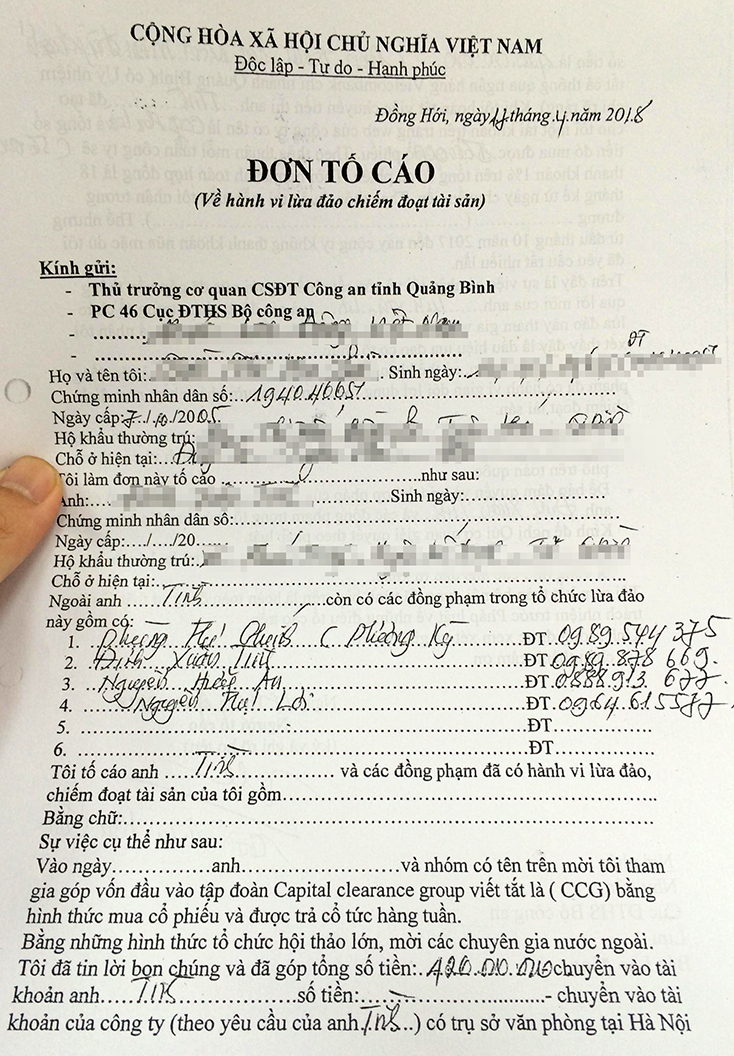 CỘNG HÒA XÃ HỘI CHỦ NGHĨA VIỆT NAM
Độc lập - Tự do - Hạnh phúc
Đồng Hới, ngày 11 tháng 4 năm 2018
ĐƠN TỐ CÁO
(Về hành vi lừa đảo chiếm đoạt tài sản)
Kính gửi:
- Thủ trưởng cơ quan CSĐT Công an tỉnh Quảng Bình
- PC 46 Cục ĐTHS Bộ công an
-
-
ĐT
Họ và tên tôi: . Sinh ngày:
Chứng minh nhân dân số: 194040651
Ngày cấp: 7/10/2005.
Hộ khẩu thường trú:
Chỗ ở hiện tại:
Tôi làm đơn này tố cáo như sau:
Anh: Sinh ngày:
Chứng minh nhân dân số:
Ngày cấp:..../..../20.....
Hộ khẩu thường trú:
Chỗ ở hiện tại:
Ngoài anh Tính còn có các đồng phạm trong tổ chức lừa đảo
này gồm có:
1. Phùng Thị ( Phượng Kỳ ĐT 0989.544 375
2. Đinh Xuân Tính ĐT 0989.878 669.
3. Nguyễn Hoài An ĐT 0888.913 677.
4. Nguyễn Thị Lợi ĐT 0964 615577
5. ĐT
6. ĐT
Tôi tố cáo anh Tính và các đồng phạm đã có hành vi lừa đảo,
chiếm đoạt tài sản của tôi gồm
Bằng chữ:
Sự việc cụ thể như sau:
Vào ngày anh và nhóm có tên trên mời tôi tham
gia góp vốn đầu vào tập đoàn Capital clearance group viết tắt là ( CCG) bằng
hình thức mua cổ phiếu và được trả cổ tức hàng tuần.
Bằng những hình thức tổ chức hội thảo lớn, mời các chuyên gia nước ngoài.
Tôi đã tin lời bọn chúng và đã góp tổng số tiền: 420.000.000 chuyển vào tài
khoản anh Tính số tiền: - chuyển vào tài
khoản của công ty (theo yêu cầu của anh Tính) có trụ sở văn phòng tại Hà Nội